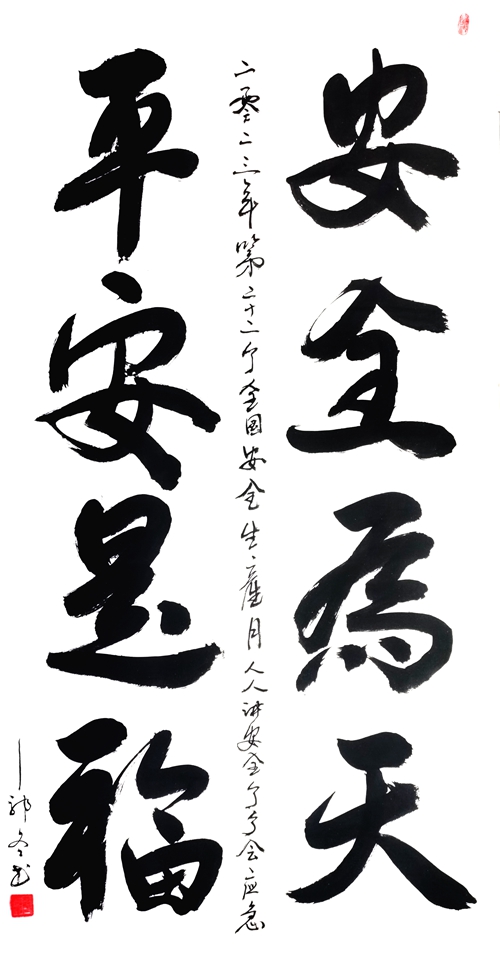 安全為天
二零二三年第二十二个全国安全生產月人人讲安全个个会应急
平安是福
郭冬